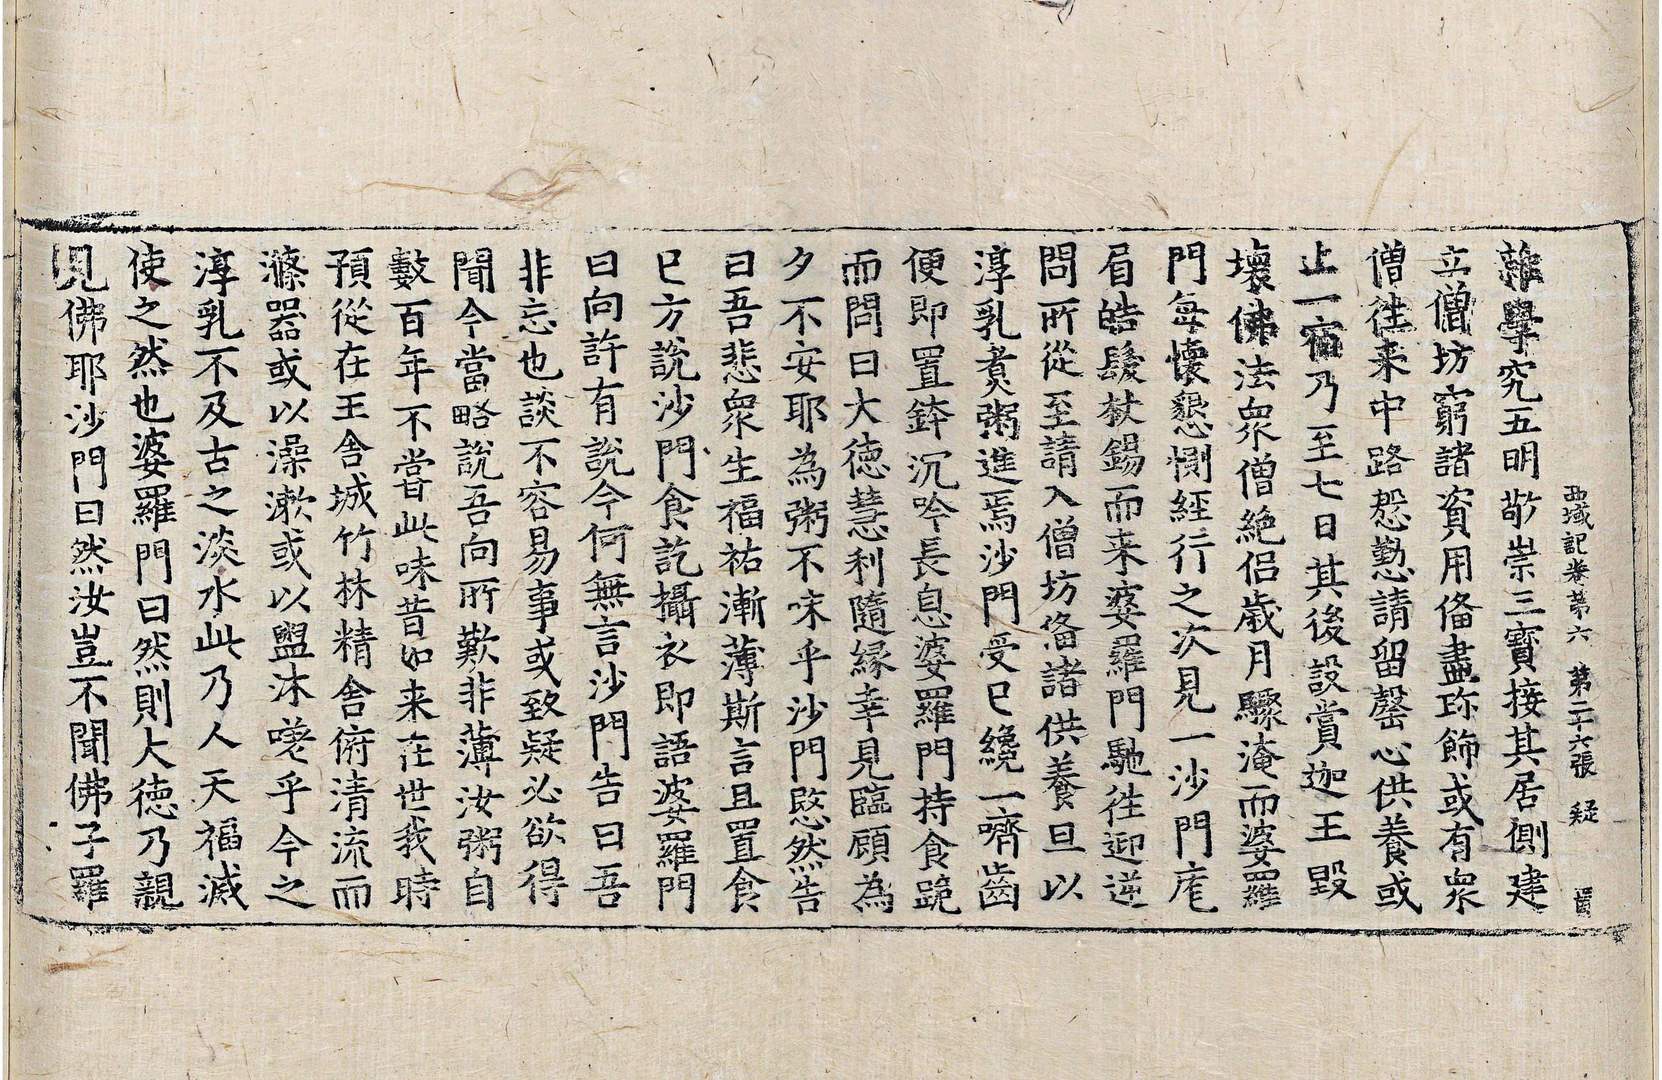 西域記卷第六 第二十六張 疑
雜學究五明敬崇三寶接其居側建
立僧坊窮諸資用俻盡珎飾或有衆
僧徃来中路慇懃請留罄心供養或
止一宿乃至七日其後設賞迦王毀
壞佛法衆僧絶侣歲月驟淹而婆羅
門每懷懇惻經行之次見一沙門庬
眉皓髮杖錫而来婆羅門馳徃迎逆
問所從至請入僧坊俻諸供養旦以
淳乳煑粥進焉沙門受巳纔一嚌齒
便即置鉢沉吟長息婆羅門持食跪
而問曰大德慧利隨緣幸見臨顧為
夕不安耶為粥不味乎沙門愍然告
曰吾悲衆生福祐漸薄斯言且置食
巳方說沙門食訖攝衣即語婆羅門
曰向許有說今何無言沙門告曰吾
非忘也談不容易事或致疑必欲得
聞今當略說吾向所歎非薄汝粥自
數百年不嘗此味昔如来在世我時
預從在王舍城竹林精舍俯清流而
滌器或以澡漱或以盥沐嗟乎今之
淳乳不及古之淡水此乃人天福滅
使之然也婆羅門曰然則大德乃親
見佛耶沙門曰然汝豈不聞佛子羅